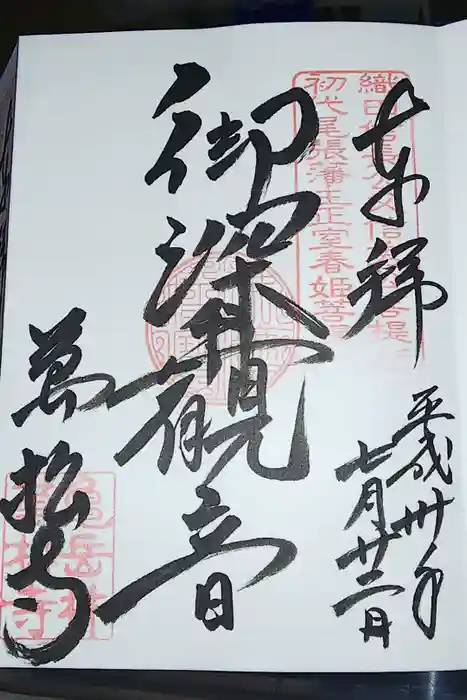 奉拝
織田信長公父信秀公菩提寺
初代尾張藩主正室春姫菩提寺
平成卅年
七月廿二日
御深井観音
萬松寺
龜岳林
萬松寺